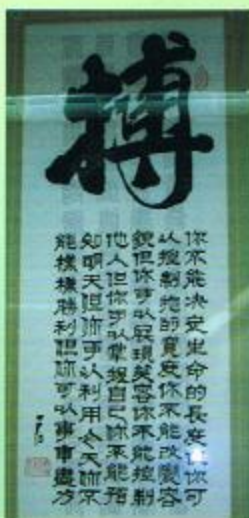 搏
你不能决定生命的長度但你可
以控制牠的寬度你不能改變容
貌但你可以展現笑容你不能控制
他人但你可以掌握自己你不能預
知明天但你可以利用今天你不
能樣樣勝利但你可以事事盡力